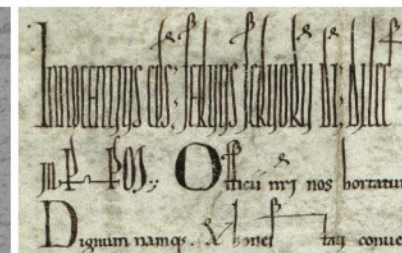 Innocentius eps; servus servorum di; dilec
in P POS; Officiu nri nos hortatur
Dignum namq; & hones tati conve